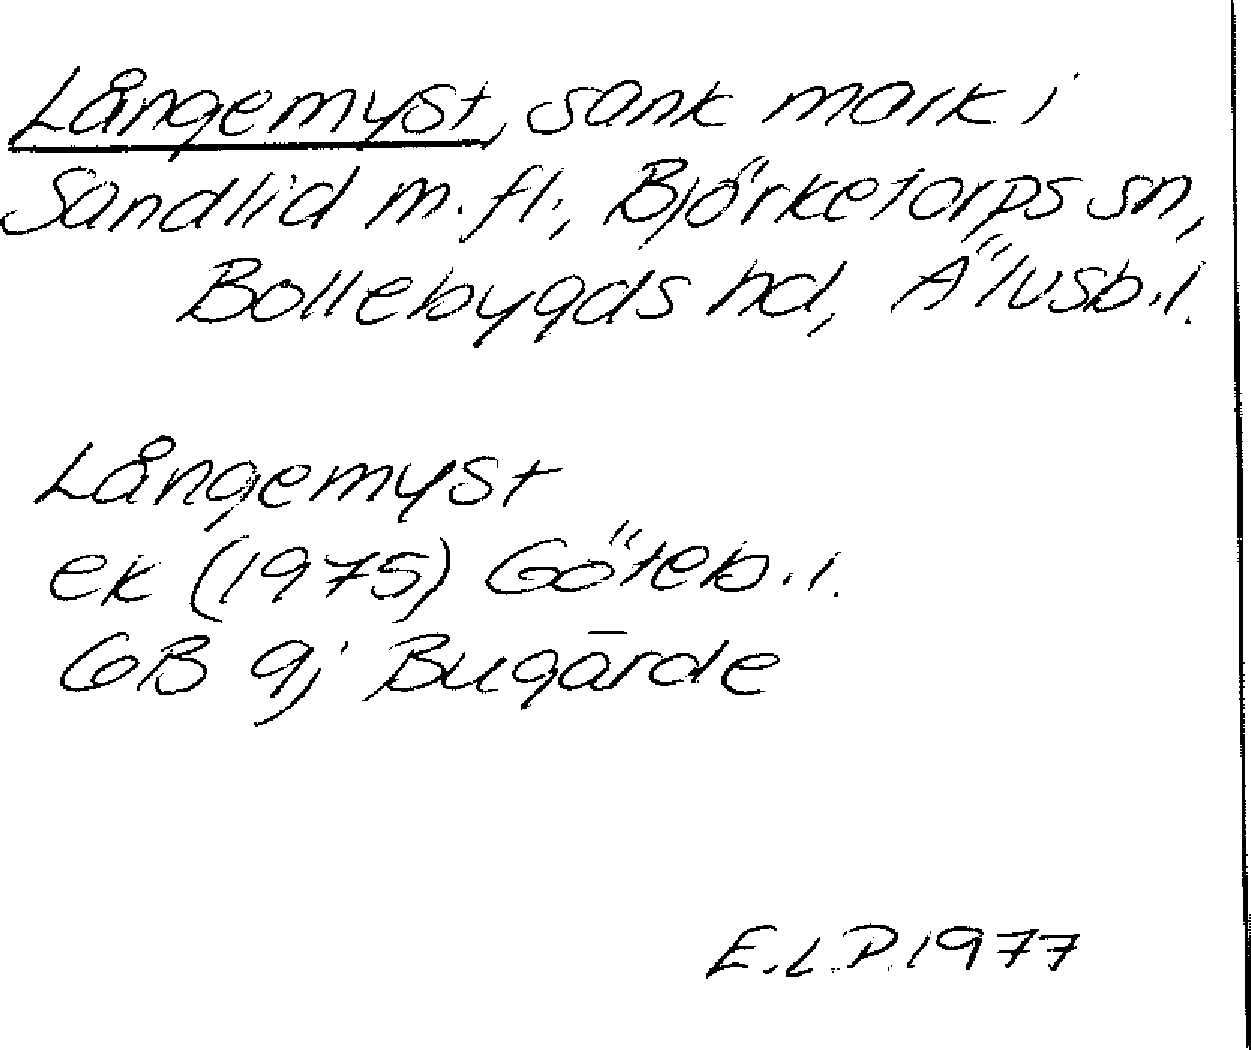 Långemyst, sank mark i
Sandlid m.fl., Björketorps sn,
Bollebygds hd, Älvsb.l.
Långemyst
ek (1975) Göteb.l.
GB 9j Bugärde
E.L.P.1977